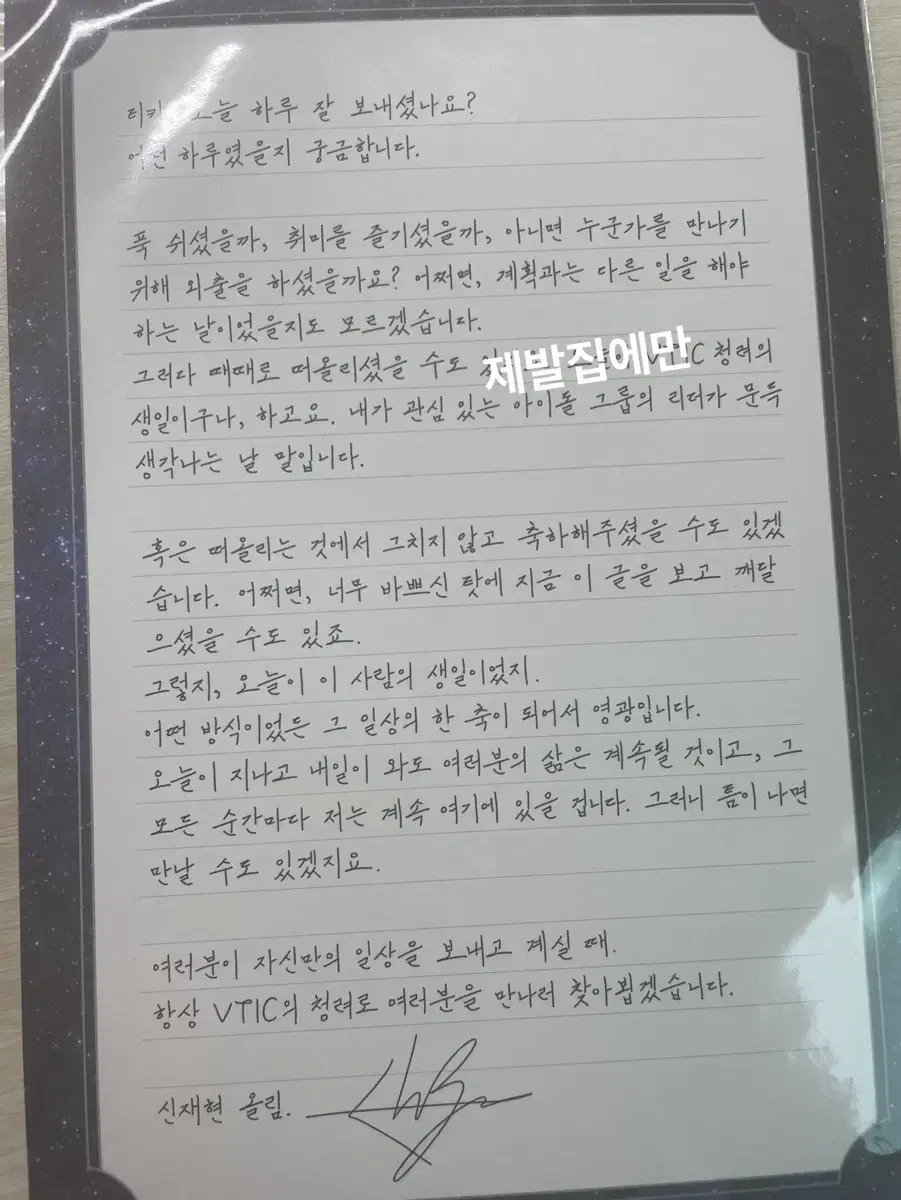 티카 오늘 하루 잘 보내셨나요?
어떤 하루였을지 궁금합니다.
푹 쉬셨을까, 취미를 즐기셨을까, 아니면 누군가를 만나기
위해 외출을 하셨을까요? 어쩌면, 계획과는 다른 일을 해야
하는 날이었을지도 모르겠습니다.
그러다 때때로 떠올리셨을 수도 VTIC 청려의
제발집에만
생일이구나, 하고요. 내가 관심 있는 아이돌 그룹의 리더가 문득
생각나는 날 말입니다.
혹은 떠올리는 것에서 그치지 않고 축하해주셨을 수도 있겠
습니다. 어쩌면, 너무 바쁘신 탓에 지금 이 글을 보고 깨달
으셨을 수도 있죠.
그렇지, 오늘이 이 사람의 생일이었지.
어떤 방식이었든 그 일상의 한 축이 되어서 영광입니다.
오늘이 지나고 내일이 와도 여러분의 삶은 계속될 것이고, 그
모든 순간마다 저는 계속 여기에 있을 겁니다. 그러니 틈이 나면
만날 수도 있겠지요.
여러분이 자신만의 일상을 보내고 계실 때.
항상 VTIC의 청려로 여러분을 만나러 찾아뵙겠습니다.
신재현 올림.